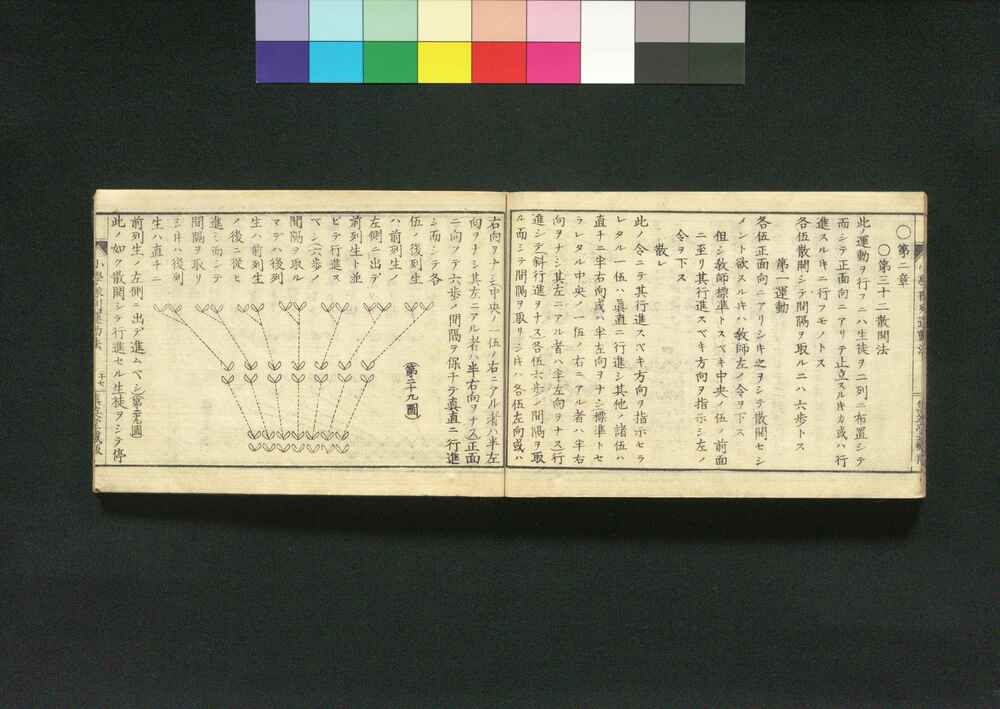 〇第二章
〇第三十二散開法
此ノ運動ヲ行フニハ生徒ヲ二列ニ布置シテ
而シテ正面向ニアリテ正立スルキカ或ハ行
進スルキニ行フモノトス
各伍散開シテ間隔ヲ取ルニハ六歩トス
第一運動
各伍正面向ニアリシキ之ヲシテ散開セシ
メント欲スルキハ教師左ノ令ヲ下ス
但シ教師標準トスベキ中央ノ伍ノ前面
ニ至リ其行進スベキ方向ヲ指示シ左ノ
令ヲ下ス
散レ
此ノ令ニテ其行進スベキ方向ヲ指示セラ
レタル一伍ハ眞直ニ行進シ其他ノ諸伍ハ
直チニ半右向或ハ半左向ヲナシ標準トセ
ラレタル中央ノ一伍ノ右ニアル者ハ半右
向ヲナシ其左ニアル者ハ半左向ヲナス行
進シテ斜行進ヲナス各伍六歩ノ間隔ヲ取
ル而シテ間隔ヲ取リシキハ各伍左向或ハ
右向ヲナシ中央ノ一伍ノ右ニアル者ハ半左
向ヲナシ其左ニアル者ハ半右向ヲナス正面
ニ向ツテ六歩ノ間隔ヲ保チテ眞直ニ行進
シ而シテ各
伍ノ後列生
ハ前列生ノ
左側ニ出デ
前列生ト並
ビテ行進ス
ベシ六歩ノ
間隔ヲ取ル
マデハ後列
生ハ前列生
ノ後ニ從ヒ
進ミ而シテ
間隔ヲ取リ
シキハ後列
生ハ直チニ
第二十九圖
前列生ノ左側ニ出デ進ムベシ
此ノ如ク散開シテ行進セル生徒ヲシテ停